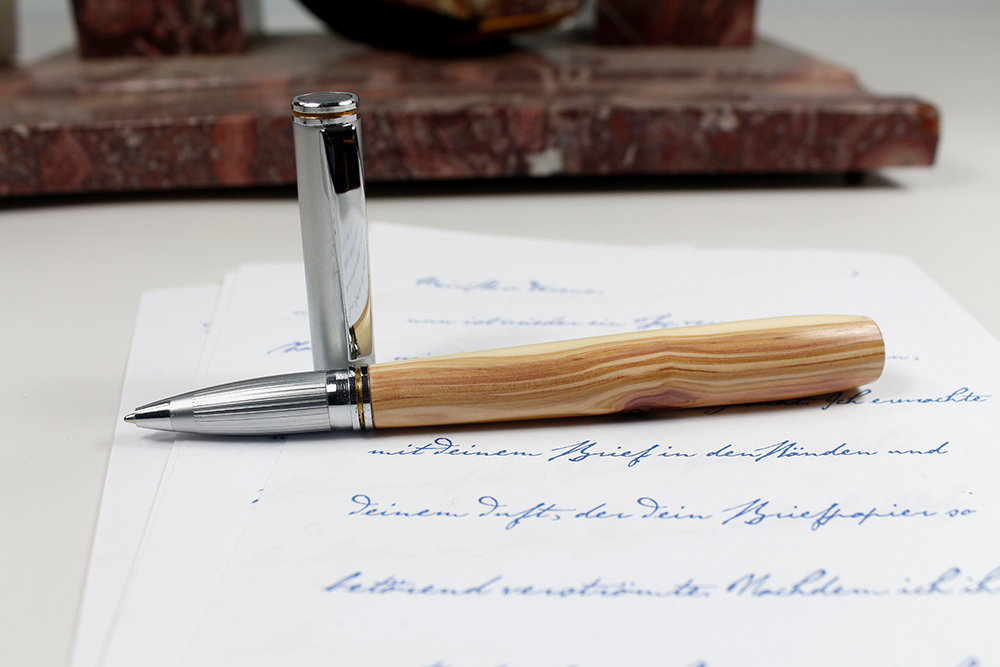 nun ist wieder ein
Ich erwachte
mit deinem Brief in den Händen und
deinem Duft, der dein Briefpapier so
betörend verströmte. Nachdem ich ih